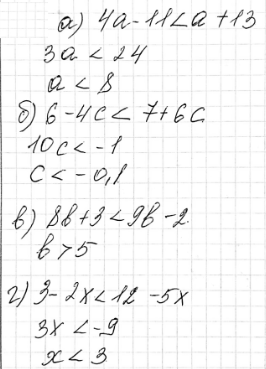 а) 4a-11<a+13
3a<24
a<8
б) 6-4c<7+6c
10c<-1
c<-0,1
в) 8b+3<9b-2
b>5
г) 3-2x<12-5x
3x<-9
x<3